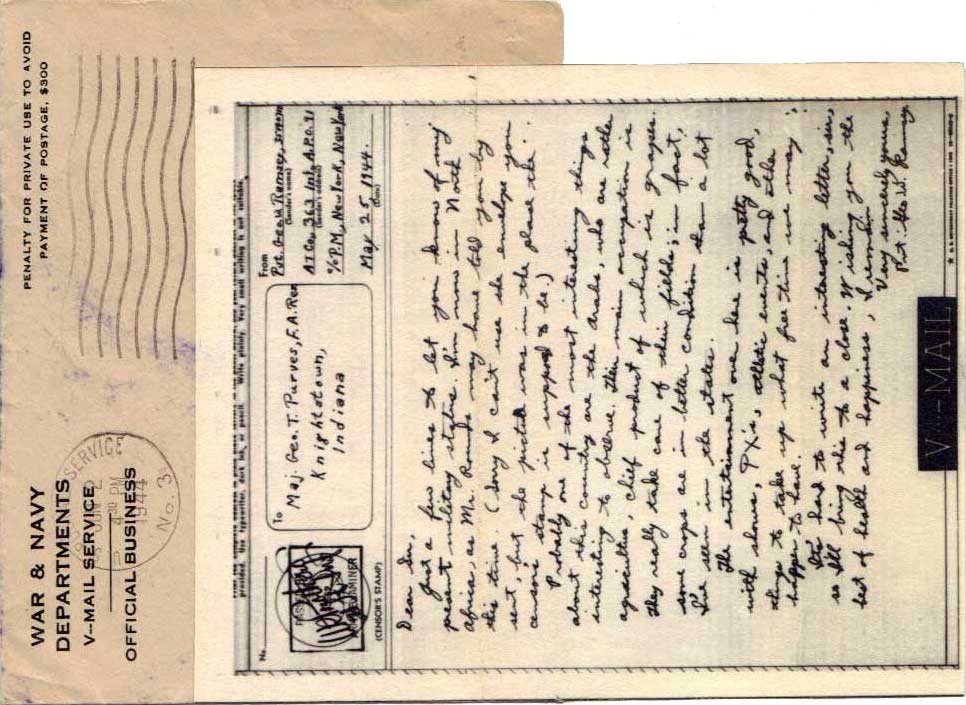 WAR & NAVY
DEPARTMENTS
V–MAIL SERVICE
OFFICIAL BUSINESS
PENALTY FOR PRIVATE USE TO AVOID
PAYMENT OF POSTAGE, $300
SERVICE
JUN 2
4 30 PM
1944
No. 3
provided. Use typewriter, dark ink, or pencil. Write plainly. Very small writing is not suitable.
No.
(CENSOR'S STAMP)
To
Maj. Geo. T. Purves, F.A. Res
Knightstown,
Indiana
From
Pvt. Geo. W. Ramsey,
(Sender's name)
AT Co, 363 Inf, A.P.O. 91
(Sender's address)
% P.M., New York, New York
May 25, 1944.
(Date)
Dear Sir,
Just a few lines to let you know of my
present military status. I'm now in North
Africa, as Mr. Rounds may have told you by
this time. (Sorry I can't use the envelope you
sent, but the picture was in the place the
censor's stamp is supposed to be.)
Probably one of the most interesting things
about this country are the Arabs, who are rather
interesting to observe. Their main occupation is
agriculture, chief product of which is grapes.
They really take care of their fields; in fact,
some crops are in better condition than a lot
I've seen in the states.
The entertainment over here is pretty good,
with shows, PX's, athletic events, and other
things to take up what free time we may
happen to have.
It's hard to write an interesting letter, sir,
so I'll bring this to a close. Wishing you the
best of health and happiness, I remain
Very sincerely yours,
Pvt. Geo. W. Ramsey
V–MAIL